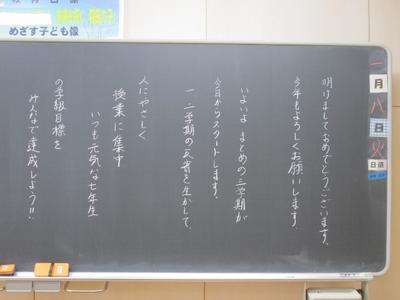 めざす子ども像
一月八日火
日直
明けましておめでとうございます。
今年もよろしくお願いします。
いよいよ まとめの三学期が
今日からスタートします。
一、二学期の反省を生かして、
人にやさしく
授業に集中
いつも元気な七年生
の学級目標を
みんなで達成しよう!!